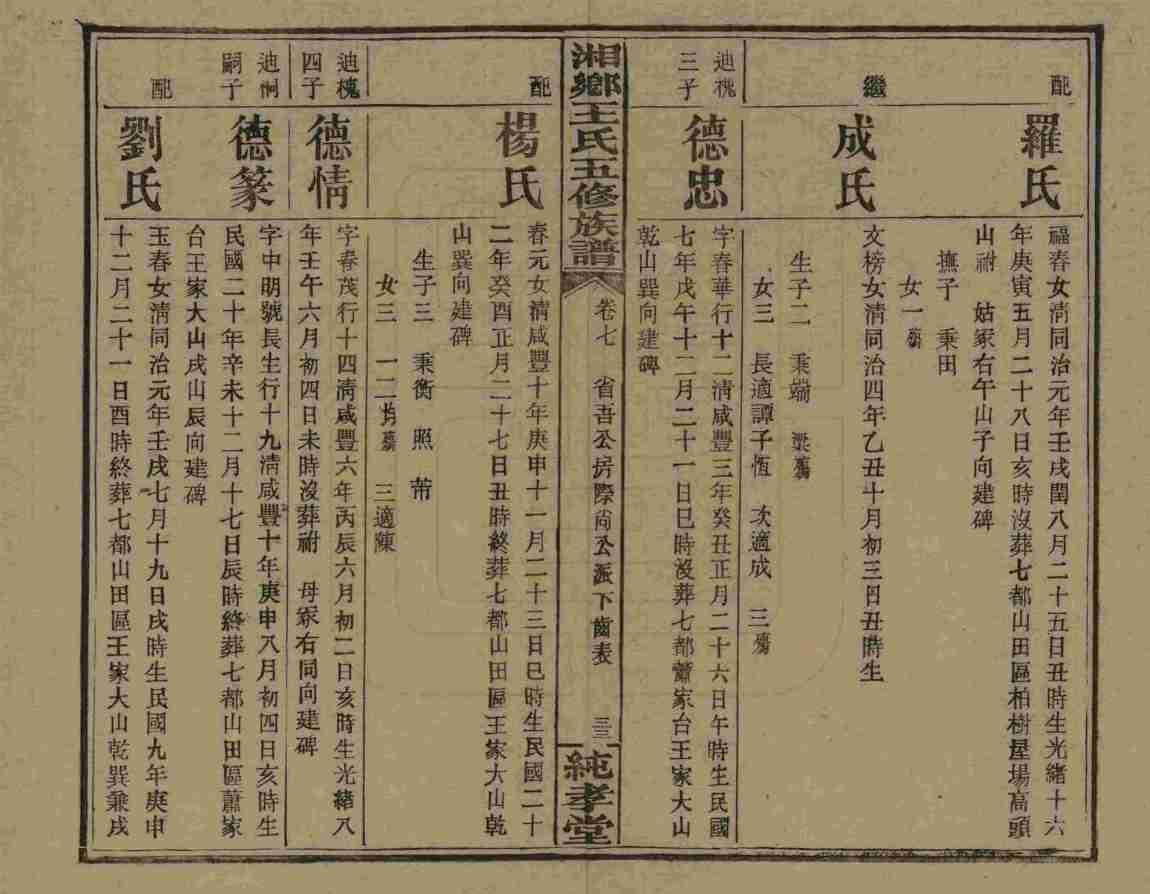 配
羅氏
福春女清同治元年壬戌閏八月二十五日丑時生光緒十六
年庚寅五月二十八日亥時沒葬七都山田區柏樹屋場高頭
山祔　姑冢右午山子向建碑
撫子　秉田
女一殤
繼
成氏
文榜女清同治四年乙丑十月初三日丑時生
生子二　秉端　梁殤
女三　長適譚子恆　次適成　三殤
迪槐
三子
德忠
字春華行十二清咸豐三年癸丑正月二十六日午時生民國
七年戊午十二月二十一日巳時沒葬七都蕭家台王家大山
乾山巽向建碑
湘鄉王氏五修族譜
卷七　省吾公房際尚公派下齒表　三三
純孝堂
配
楊氏
春元女清咸豐十年庚申十一月二十三日巳時生民國二十
二年癸酉正月二十七日丑時終葬七都山田區王家大山乾
山巽向建碑
生子三　秉衡　照　芾
女三　一二均殤　三適陳
迪槐
四子
德情
字春茂行十四清咸豐六年丙辰六月初二日亥時生光緒八
年壬午六月初四日未時沒葬祔　母冢右同向建碑
迪桐
嗣子
德篆
字中明號長生行十九清咸豐十年庚申八月初四日亥時生
民國二十年辛未十二月十七日辰時終葬七都山田區蕭家
台王家大山戌山辰向建碑
配
劉氏
玉春女清同治元年壬戌七月十九日戌時生民國九年庚申
十二月二十一日酉時終葬七都山田區王家大山乾巽兼戌